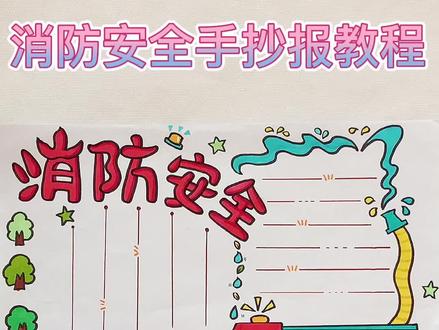 消防安全手抄报教程
消防安全